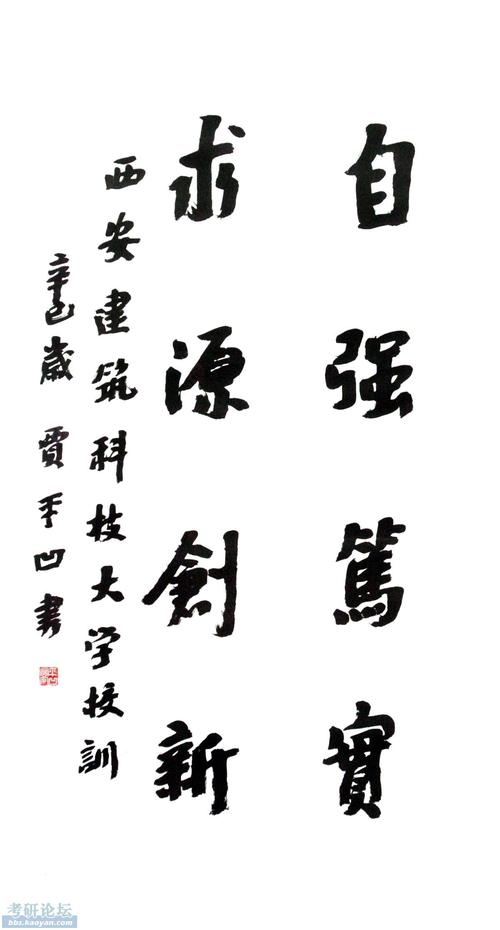 自强篤實
求源創新
西安建筑科技大学校訓
辛巳歲 賈平凹書
考研论坛
bbs.kaoyan.com